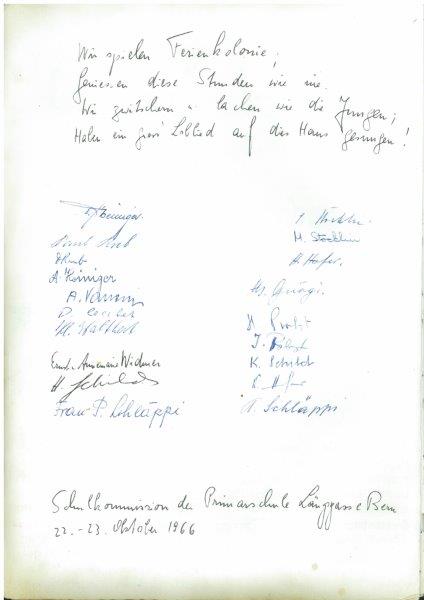 Wir spielen Ferienkolonie,
Geniessen diese Stunden wie nie.
Wir zwitschern u. lachen wie die Jungen;
Haben ein gross' Loblied auf dies Haus gesungen!
A. Heiniger
A. Vannini
M. Walthert
Ernst u. Annemarie Widmer
H. Schild
Frau P. Schläppi
M. Stöcklin
A. Hofer.
Hs. Gürgi.
H. Probst
K. Schild
P. Schläppi
Schulkommission der Primarschule Länggasse Bern
22.-23. Oktober 1966